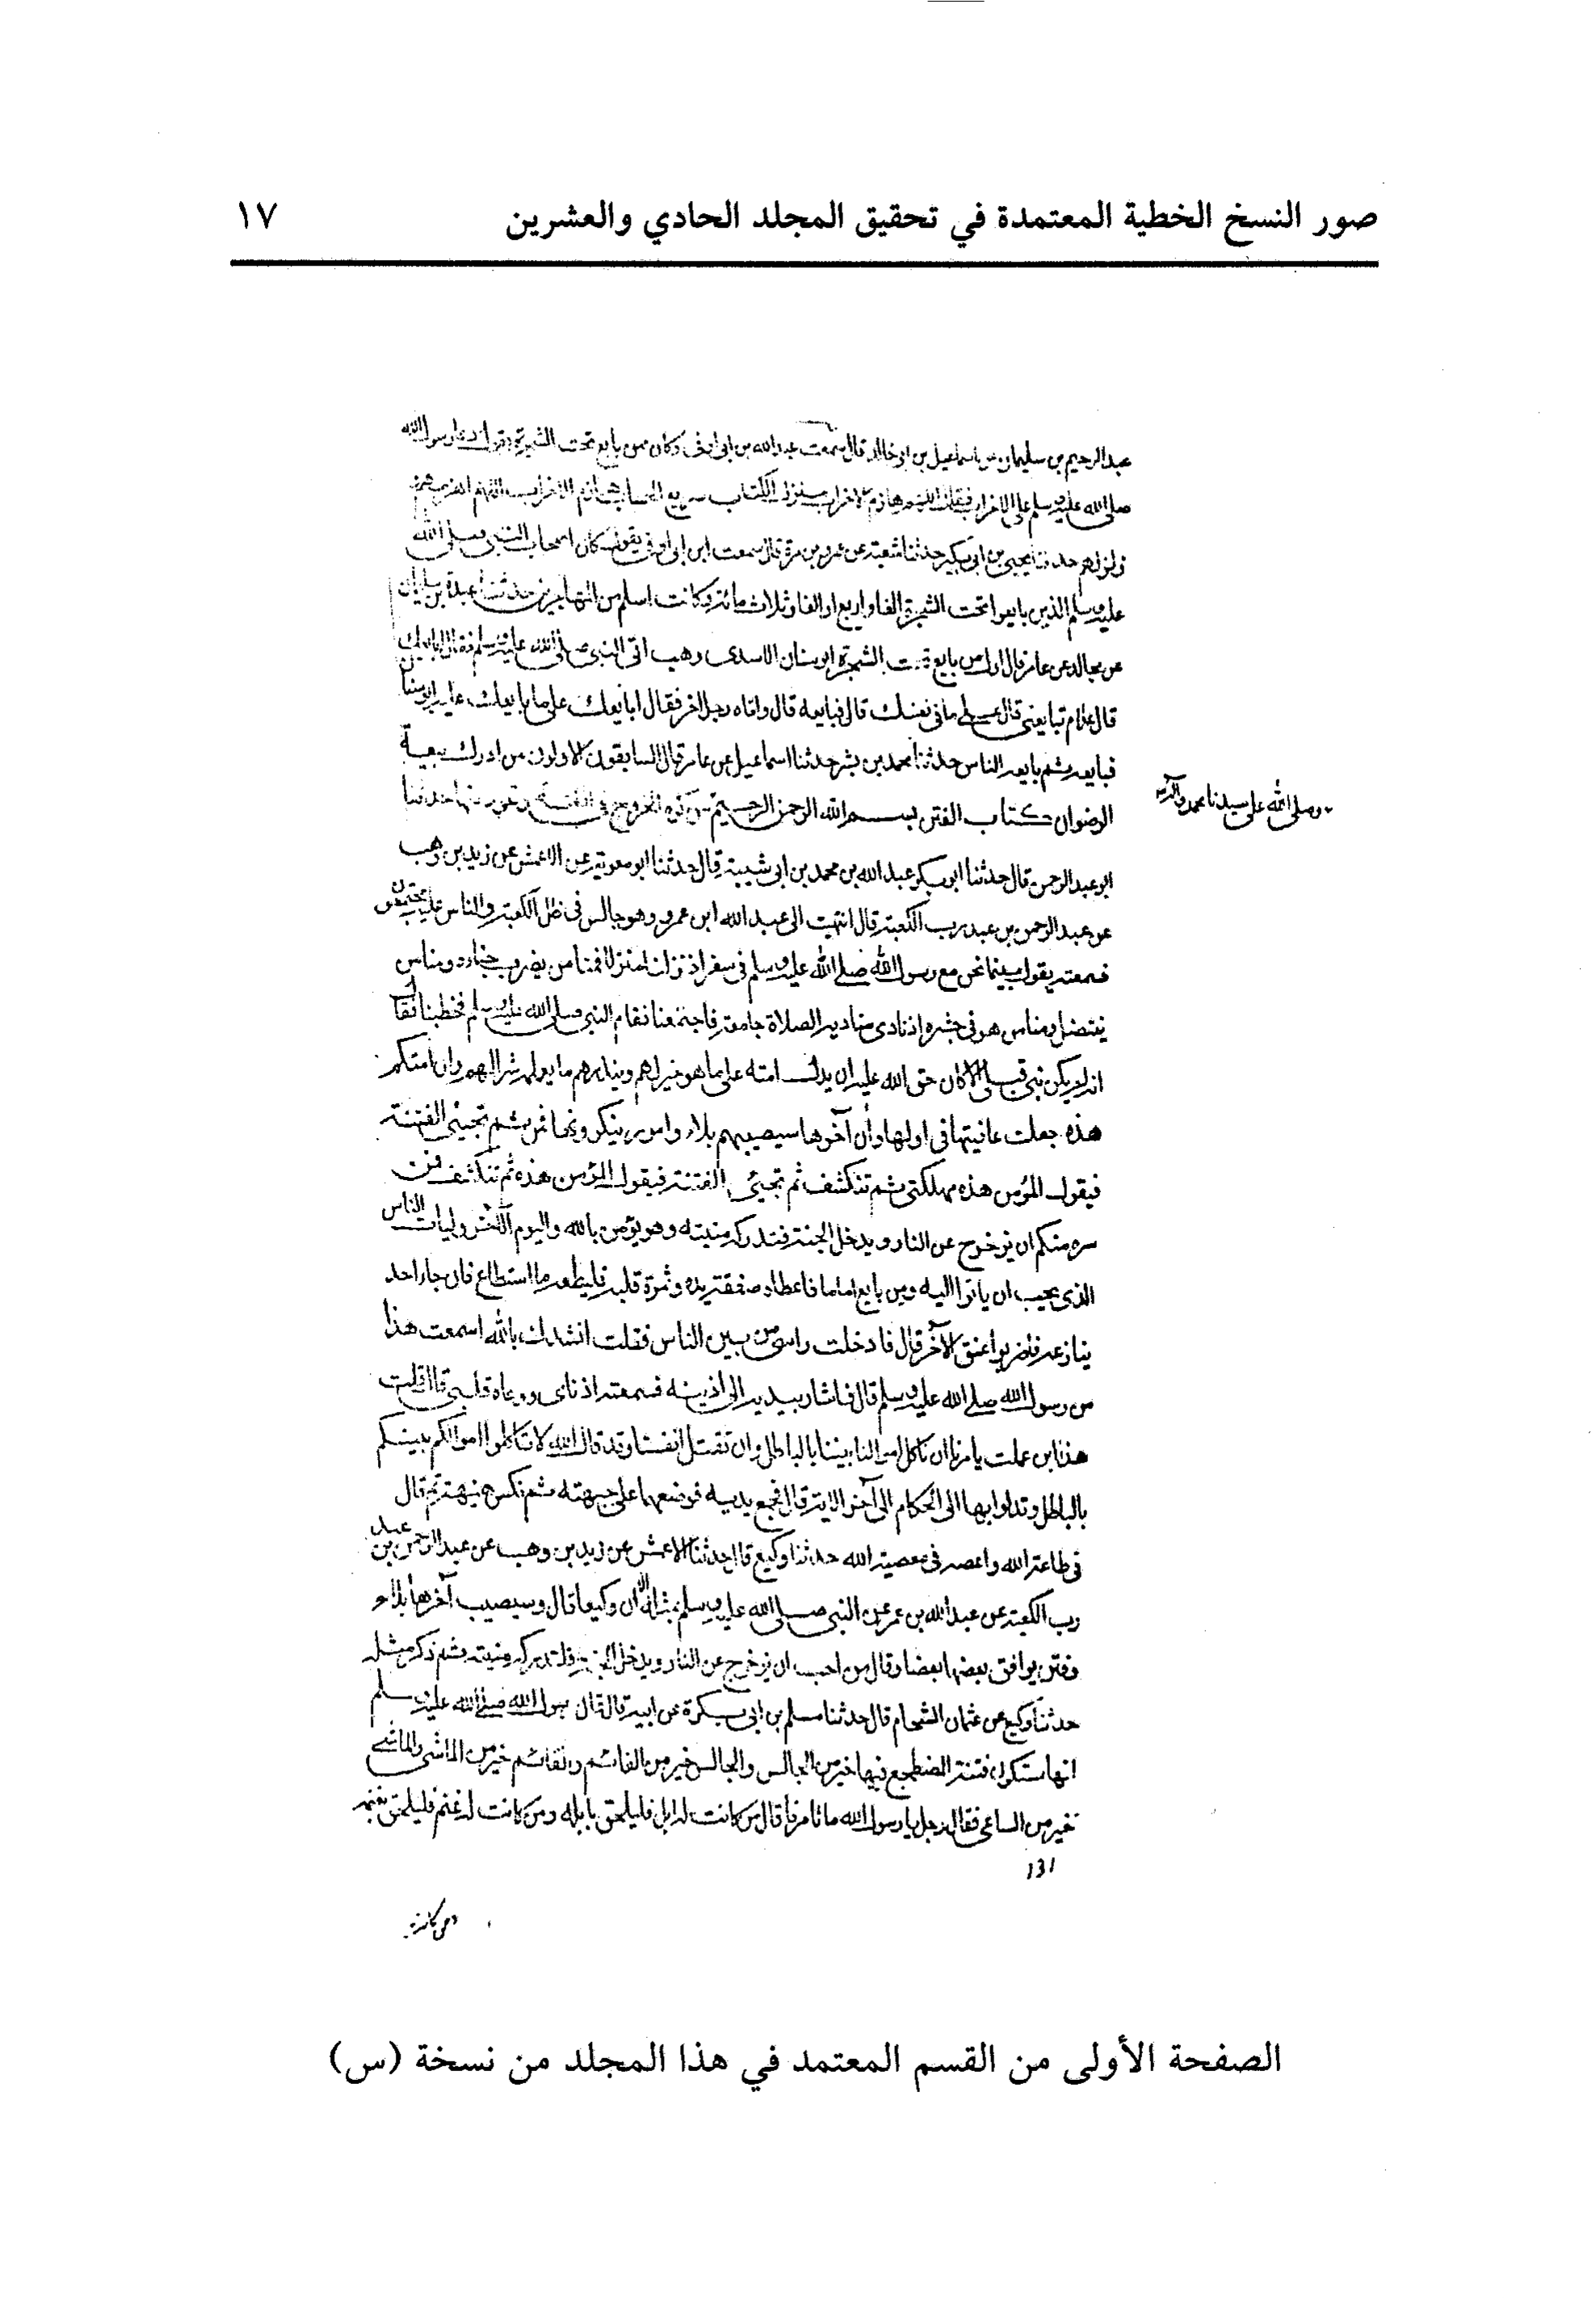 صور النسخ الخطية المعتمدة في تحقيق المجلد الحادي والعشرين ١٧
عبد الرحيم بن سليمان عن اسماعيل بن ابى خالد قال سمعت عبد الله بن ابى اوفى وكان ممن بايع تحت الشجرة يقول دعا رسول الله
صلى الله عليه وسلم على الاحزاب فقال اللهم منزل الكتاب سريع الحساب هازم الاحزاب اللهم اهزمهم
وزلزلهم حدثنا يحيى بن ابى بكير حدثنا شعبة عن عمرو بن مرة قال سمعت ابن ابى اوفى يقول كان اصحاب النبى صلى الله
عليه وسلم الذين بايعوا تحت الشجرة الفا واربع او الفا وثلاث مائة وكانت اسلم من المهاجرين حدثنا عبدة بن سليمان
عن مجالد عن عامر قال اول من بايع تحت الشجرة ابو سنان الاسدى وهب اتى النبى صلى الله عليه وسلم فقال ابايعك
قال علام تبايعنى قال على ما فى نفسك قال فبايعه قال واتاه رجل اخر فقال ابايعك على ما بايعك عليه ابو سنان
فبايعه ثم بايعه الناس حدثنا محمد بن بشر حدثنا اسماعيل عن عامر قال السابقون الاولون من ادرك بيعة
الرضوان كتاب الفتن بسم الله الرحمن الرحيم من كره الخروج فى الفتنة وتعوذ منها حدثنا
وصلى الله على سيدنا محمد وآله
ابو عبد الرحمن قال حدثنا ابو بكر عبد الله بن محمد بن ابى شيبة قال حدثنا ابو معوية عن الاعمش عن زيد بن وهب
عن عبد الرحمن بن عبد رب الكعبة قال انتهيت الى عبد الله ابن عمرو وهو جالس فى ظل الكعبة والناس عليه مجتمعون
فسمعته يقول بينما نحن مع رسول الله صلى الله عليه وسلم فى سفر اذ نزلنا منزلا فمنا من يضرب خباءه ومنا من
ينتضل ومنا من هو فى جشره اذ نادى مناديه الصلاة جامعة فاجتمعنا فقام النبى صلى الله عليه وسلم فخطبنا فقال
انه لم يكن نبى قبلى الا كان حق الله عليه ان يدل امته على ما هو خير لهم وينذرهم ما يعلمه شرا لهم وان امتكم
هذه جعلت عافيتها فى اولها وان آخرها سيصيبهم بلاء وامور ينكرونها فمن ثم تجيئ الفتنة
فيقول المؤمن هذه مهلكتى ثم تنكشف ثم تجيئ الفتنة فيقول المؤمن هذه ثم تنكشف فمن
سره منكم ان يزحزح عن النار ويدخل الجنة فتدركه منيته وهو يؤمن بالله واليوم الآخر وليات الناس
الذى يحب ان ياتوا اليه ومن بايع اماما فاعطاه صفقة يده وثمرة قلبه فليطعه ما استطاع فان جاء احد
ينازعه فاضربوا عنق الآخر قال فادخلت راسى من بين الناس فقلت انشدك بالله اسمعت هذا
من رسول الله صلى الله عليه وسلم قال فاشار بيديه الى اذنيه فسمعته اذناى ووعاه قلبى قال قلت
هذا ابن عمك يامرنا ان ناكل اموالنا بيننا بالباطل وان نقتل انفسنا وقد قال الله لا تاكلوا اموالكم بينكم
بالباطل وتدلوا بها الى الحكام الى آخر الاية قال فجمع يديه فوضعهما على جبهته ثم نكس هنيهة ثم قال
فى طاعة الله واعصه فى معصية الله حدثنا وكيع قال حدثنا الاعمش عن زيد بن وهب عن عبد الرحمن بن عبد
رب الكعبة عن عبد الله بن عمر عن النبى صلى الله عليه وسلم بمثله الا ان وكيعا قال وسيصيب آخرها بلاء
وفتن يوافق بعضها بعضا وقال من احب ان يزحزح عن النار ويدخل الجنة فلتدركه منيته ثم ذكر مثله
حدثنا وكيع عن عثمان الشحام قال حدثنا مسلم بن ابى بكرة عن ابيه قال قال رسول الله صلى الله عليه وسلم
انها ستكون فتنة المضطجع فيها خير من الجالس والجالس خير من القائم والقائم خير من الماشى والماشى
خير من الساعى فقال رجل يا رسول الله ما تامرنا قال من كانت له ابل فليلحق بابله ومن كانت له غنم فليلحق بغنمه
ومن كانت
الصفحة الأولى من القسم المعتمد في هذا المجلد من نسخة (س)